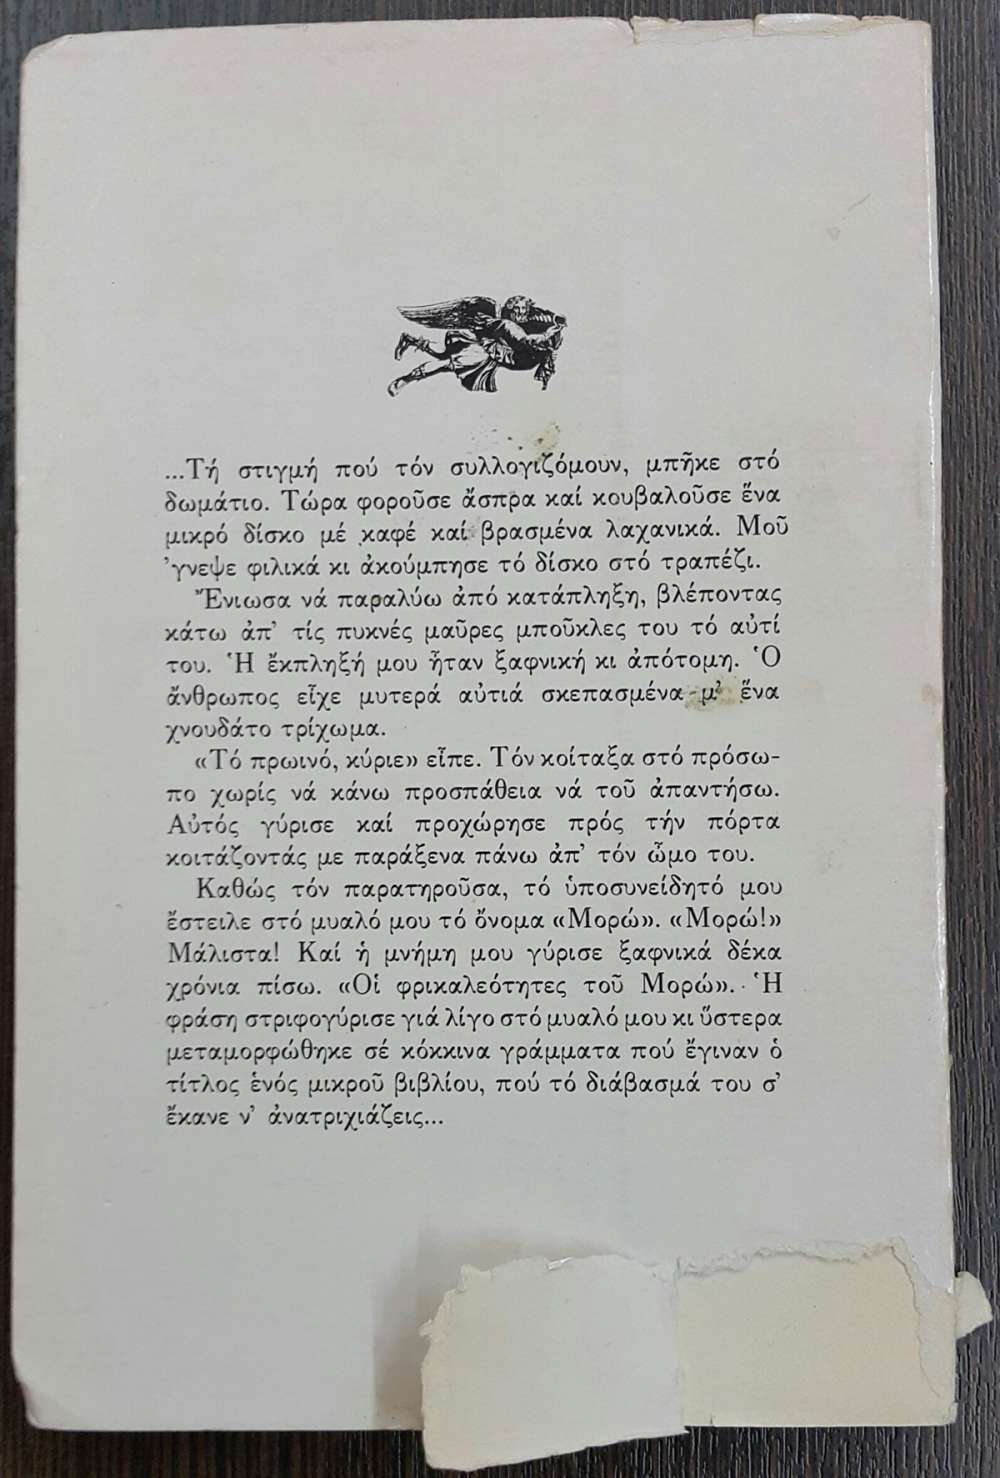 ...Τή στιγμή πού τόν συλλογιζόμουν, μπῆκε στό
δωμάτιο. Τώρα φοροῦσε ἄσπρα καί κουβαλοῦσε ἕνα
μικρό δίσκο μέ καφέ καί βρασμένα λαχανικά. Μοῦ
'γνεψε φιλικά κι ἀκούμπησε τό δίσκο στό τραπέζι.
Ἔνιωσα νά παραλύω ἀπό κατάπληξη, βλέποντας
κάτω ἀπ' τίς πυκνές μαῦρες μποῦκλες του τό αὐτί
του. Ἡ ἔκπληξή μου ἦταν ξαφνική κι ἀπότομη. Ὁ
ἄνθρωπος εἶχε μυτερά αὐτιά σκεπασμένα μ' ἕνα
χνουδάτο τρίχωμα.
«Τό πρωινό, κύριε» εἶπε. Τόν κοίταξα στό πρόσω-
πο χωρίς νά κάνω προσπάθεια νά τοῦ ἀπαντήσω.
Αὐτός γύρισε καί προχώρησε πρός τήν πόρτα
κοιτάζοντάς με παράξενα πάνω ἀπ' τόν ὦμο του.
Καθώς τόν παρατηροῦσα, τό ὑποσυνείδητό μου
ἔστειλε στό μυαλό μου τό ὄνομα «Μορώ». «Μορώ!»
Μάλιστα! Καί ἡ μνήμη μου γύρισε ξαφνικά δέκα
χρόνια πίσω. «Οἱ φρικαλεότητες τοῦ Μορώ». Ἡ
φράση στριφογύρισε γιά λίγο στό μυαλό μου κι ὕστερα
μεταμορφώθηκε σέ κόκκινα γράμματα πού ἔγιναν ὁ
τίτλος ἑνός μικροῦ βιβλίου, πού τό διάβασμά του σ'
ἔκανε ν' ἀνατριχιάζεις...